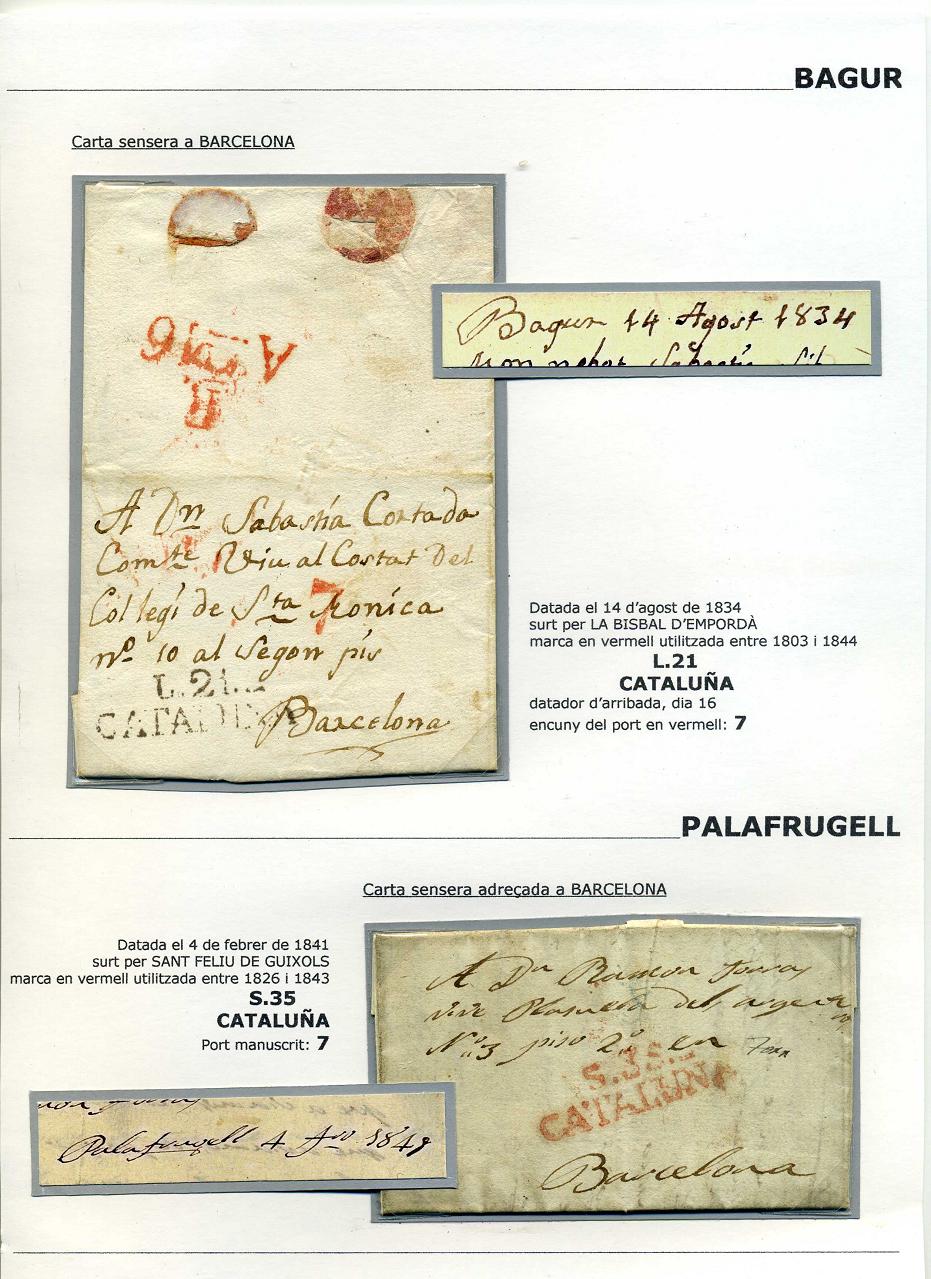 BAGUR
Carta sensera a BARCELONA
Bagur 14 Agost 1834
A Dn Sabastia Cortada
Comte Viu al Costat Del
Collegi de Sta Monica
nº 10 al Segon pis
Barcelona
7
L.21.
CATALUÑA
Datada el 14 d’agost de 1834
surt per LA BISBAL D’EMPORDÀ
marca en vermell utilitzada entre 1803 i 1844
L.21
CATALUÑA
datador d’arribada, dia 16
encuny del port en vermell: 7
PALAFRUGELL
Carta sensera adreçada a BARCELONA
Datada el 4 de febrer de 1841
surt per SANT FELIU DE GUIXOLS
marca en vermell utilitzada entre 1826 i 1843
S.35
CATALUÑA
Port manuscrit: 7
A Dn Ramon
vive Plasuela del
Nº 3 piso 2º en
S.35.
CATALUÑA
Barcelona
Palafrugell 4